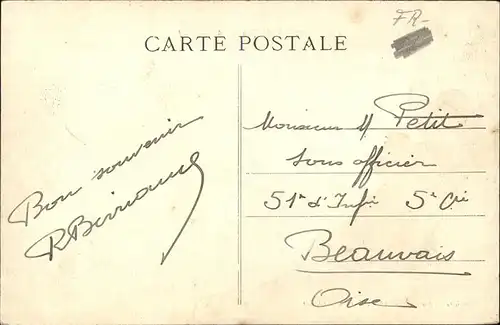 FR-
CARTE POSTALE
Bon souvenir
Monsieur M Petit
Sous officier
51e d'Infie 5e Cie
Beauvais
Oise